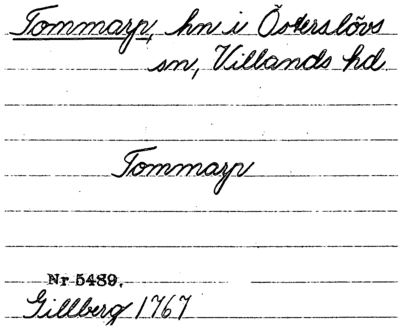 Tommarp, hn i Österslövs
sn, Villands hd.
Tommarp
Nr 5489.
Gillberg 1767